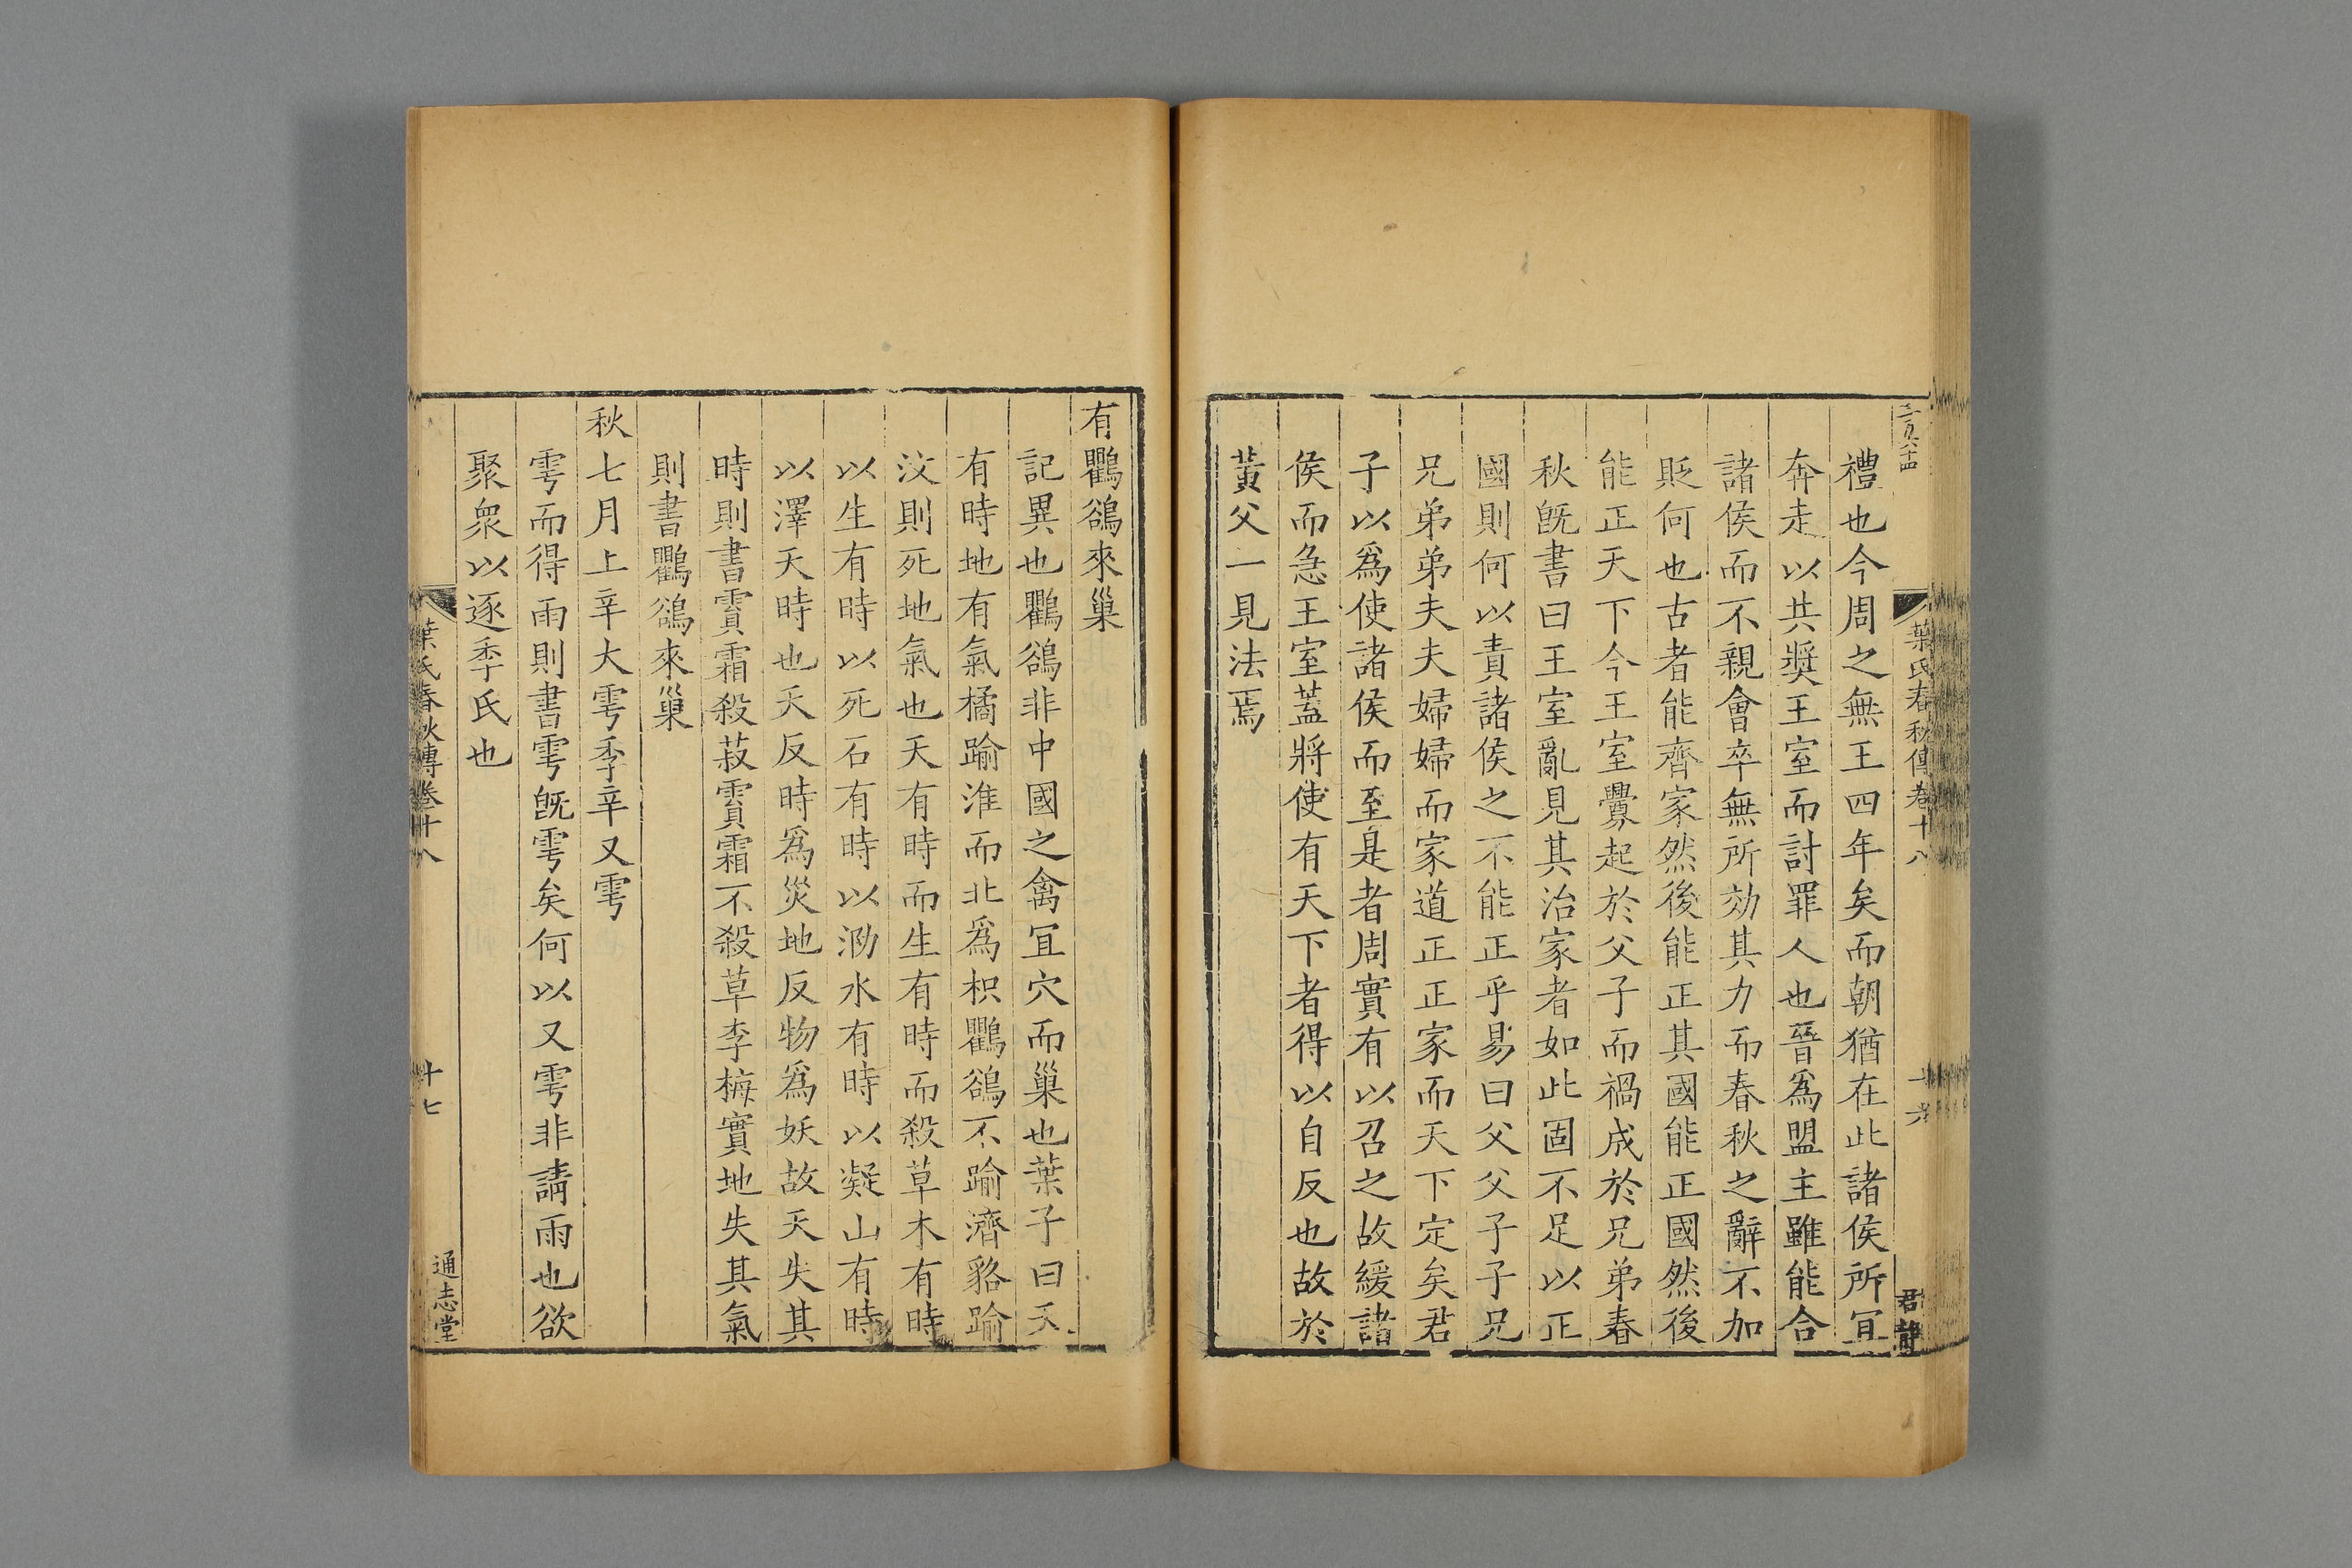 禮也今周之無王四年矣而朝猶在此諸侯所宜
奔走以共奬王室而討罪人也晉爲盟主雖能合
諸侯而不親會卒無所効其力而春秋之辭不加
貶何也古者能齊家然後能正其國能正國然後
能正天下今王室釁起於父子而禍成於兄弟春
秋旣書曰王室亂見其治家者如此固不足以正
國則何以責諸侯之不能正乎易曰父父子子兄
兄弟弟夫夫婦婦而家道正正家而天下定矣君
子以爲使諸侯而至是者周實有以召之故緩諸
侯而急王室蓋將使有天下者得以自反也故於
黃父一見法焉
葉氏春秋傳卷十八
十六
君靜
有鸜鵒來巢
記異也鸜鵒非中國之禽冝穴而巢也葉子曰天
有時地有氣橘踰淮而北爲枳鸜鵒不踰濟貉踰
汶則死地氣也天有時而生有時而殺草木有時
以生有時以死石有時以泐水有時以凝山有時
以澤天時也天反時爲災地反物爲妖故天失其
時則書霣霜殺菽霣霜不殺草李梅實地失其氣
則書鸜鵒來巢
秋七月上辛大雩季辛又雩
雩而得雨則書雩旣雩矣何以又雩非請雨也欲
聚衆以逐季氏也
葉氏春秋傳卷十八
十七
通志堂